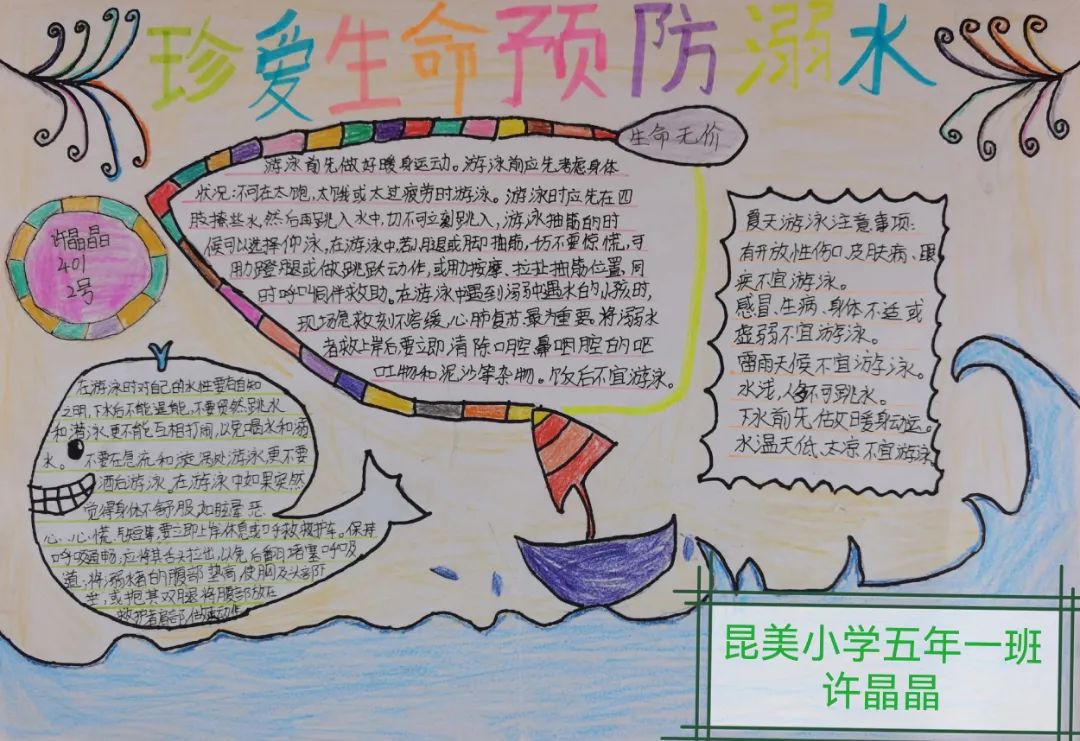 珍爱生命预防溺水
生命无价
游泳前先做好暖身运动。游泳前应先考虑身体
状况:不可在太饱、太饿或太过疲劳时游泳。游泳时应先在四
肢撩些水,然后再跳入水中,切不可立刻跳入,游泳抽筋的时
候可以选择仰泳,在游泳中若小腿或脚抽筋,切不要惊慌,可
用力蹬腿或做跳跃动作,或用力按摩、拉扯抽筋位置,同
时呼叫同伴救助。在游泳中遇到溺中遇水的小孩时,
现场急救刻不容缓,心肺复苏最为重要。将溺水
者救上岸后,要立即清除口腔鼻咽腔的呕
吐物和泥沙等杂物。饭后不宜游泳。
许晶晶
401
2号
夏天游泳注意事项:
有开放性伤口、皮肤病、眼
疾不宜游泳。
感冒、生病、身体不适或
虚弱不宜游泳。
雷雨天候不宜游泳。
水浅,人多不可跳水。
下水前先做暖身运动。
水温天低、太凉不宜游泳
在游泳时对自己的水性要有自知
之明,下水后不能逞能,不要贸然跳水
和潜泳,更不能互相打闹,以免喝水和溺
水。不要在急流和漩涡处游泳,更不要
酒后游泳。在游泳中如果突然
觉得身体不舒服,如眩晕、恶
心、心慌、气短等,要立即上岸休息或呼救救护车。保持
呼吸通畅,应将其舌头拉出,以免后翻堵塞呼吸
道,将溺水者的腹部垫高,使胸及头部下
垂,或抱其双腿将腹部放在
救护者肩部,做
昆美小学五年一班
许晶晶